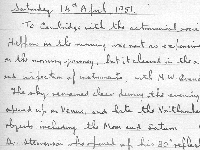 Saturday 14th April 1951.
To Cambridge with the astronomical society
Helpem on the morning was not so
on the morning journey, but it cleared in the
and inspection of instruments with M.W.
The sky remained clear during the evening
opened up on Venus, and later the Northumberland
objects including the Moon and Saturn
Dr. Stevenson also opened up his 30" reflect